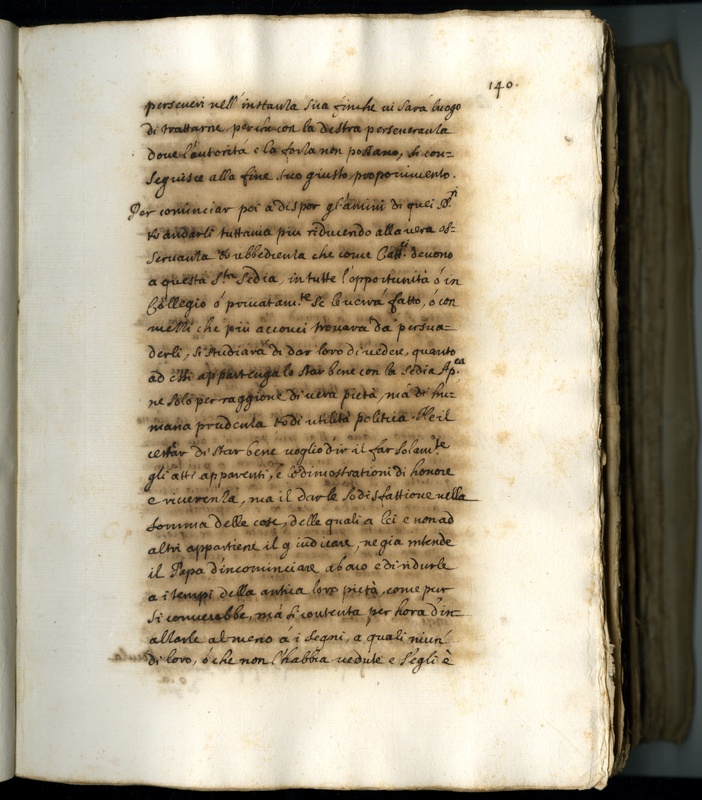 140.
perseveri nell' instanza sua finche vi sará luogo
di trattarne, perche con la destra perseveranza
dove l'autoritá e la forza non possano, si con=
seguisce alla fine suo giusto proponimento.
Per cominciar poi a dispor gl'animi di quei S.ri
et andarli tuttavia piu riducendo alla vera os=
servanza et ubbedienza che come Catt.ci devono
a questa S.ta Sedia, in tutte l'opportunitá ó in
Collegio ó privatam.te se le verrá fatto, ó con
quelli che piú acconci trovará da persua=
derli, si studiará di dar loro di vedere, quanto
ad essi appartenga lo star bene con la Sedia Ap.ca
ne solo per raggione di vera pietá, má di hu=
mana prudenza et di utilitá politica. Ne il
cercar di star bene voglio dir il far solam.te
gli atti apparenti, e le dimostrationi di honore
e riverenza, ma il darle sodisfattione nella
somma delle cose, delle quali a lei e non ad
altri appartiene il giudicare, ne gia intende
il Papa d'incominciare ab ovo e di ridurle
a i tempi della antica loro pietá, come pur
si converrebbe, má si contenta per hora d'in=
alzarle almeno á i segni, a quali niun
di loro, ó che non l'habbia vedute e s'egli è